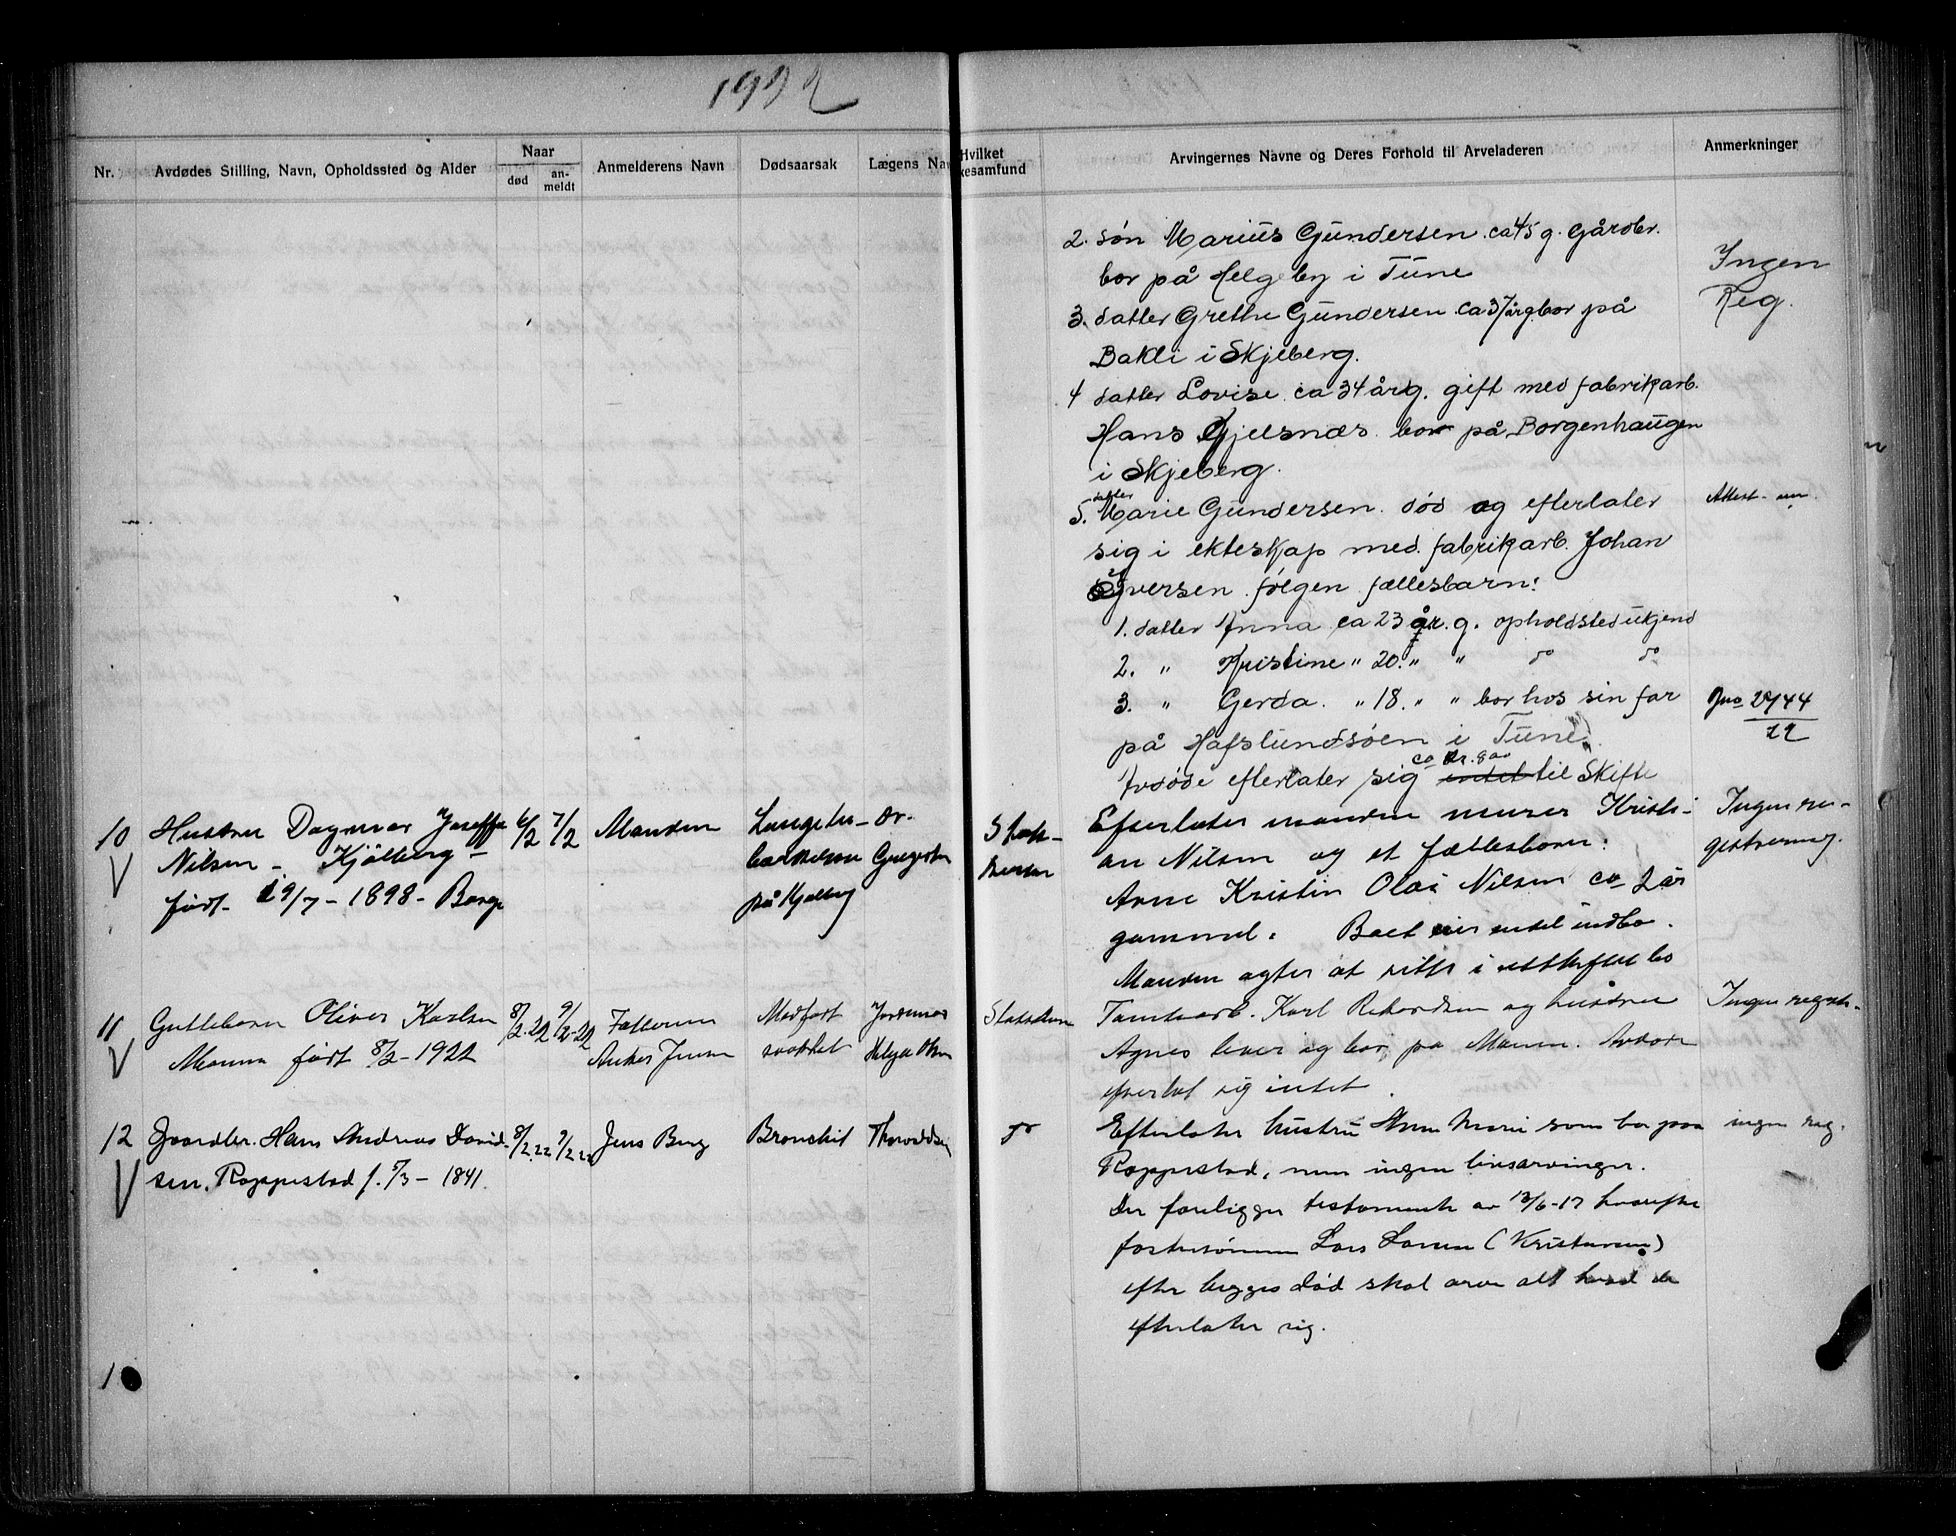 1922
Nr.
Avdødes Stilling, Navn, Opholdssted og Alder
Naar
død
an-
meldt
Anmelderens Navn
Dødsaarsak
Lægens Na
Hvilket
kesamfund
Arvingernes Navne og Deres Forhold til Arveladeren
Anmerkninger
2. søn Marius Gundersen ca 45 g. gårdbr.
bor på Helgeby i Tune
Ingen
Reg.
3. datter Grethe Gundersen ca 37 årg. bor på
Bakli i Skjeberg.
4 datter Lovise ca 34 årg. gift med fabrikarb.
Hans Gjelsnæs bor på Borgenhaugen
i Skjeberg.
5. datter Marie Gundersen død og efterlater
Attest
sig i ekteskap med fabrikarb. Johan
Iversen følgen fællesbarn:
1. datter Anna ca 23 år. g. opholdsted ukjend
2. " Kristine " 20. " " do do
3. " Gerda " 18. " " bor hos sin far
Jno 2744
22
på Hafslundsøen i Tune.
Avdøde efterlater sig ca kr. 800 til Skifte
10 Hustru Dagmar Joseffa 6/2 7/2 Manden Lungetu- Dr. Stats- Efterlater manden murer Kristi- Ingen re-
Nilsen - Kjølberg - på Kjølberg kirken an Nilsen og et fællesbarn: gistrering.
født 19/7 - 1898 - Borge Arne Kristin Olai Nilsen ca 2 år
gammel. Boet eier endel indbo.
Manden agter at sitte i uskiftet bo
11 Guttebarn Oliver Karlsen 8/2-22 9/2-22 Fatteren Medfødt Jordmor Statskirken Tomtearb. Karl Rikardsen og hustru Ingen registr.
Moum født 8/2 - 1922 Anker Jensen svakhet Helga Olsen Agnes lever og bor på Moum. Avdøde
efterlot sig intet.
12 Gaardbr. Hans Andreas David- 8/2 22 9/2 22 Jens Berg Bronchit Thorvaldsen do Efterlater hustru Anne Marie som bor paa ingen reg.
sen, Roppestad f. 5/3 - 1841. Roppestad, men ingen livsarvinger.
Der foreligger testamente av 13/6-17 hvorefter
fostersønnen Lars Larsen (Kristiansen)
efter begges død skal arve alt hvad de
efterlater sig.
1